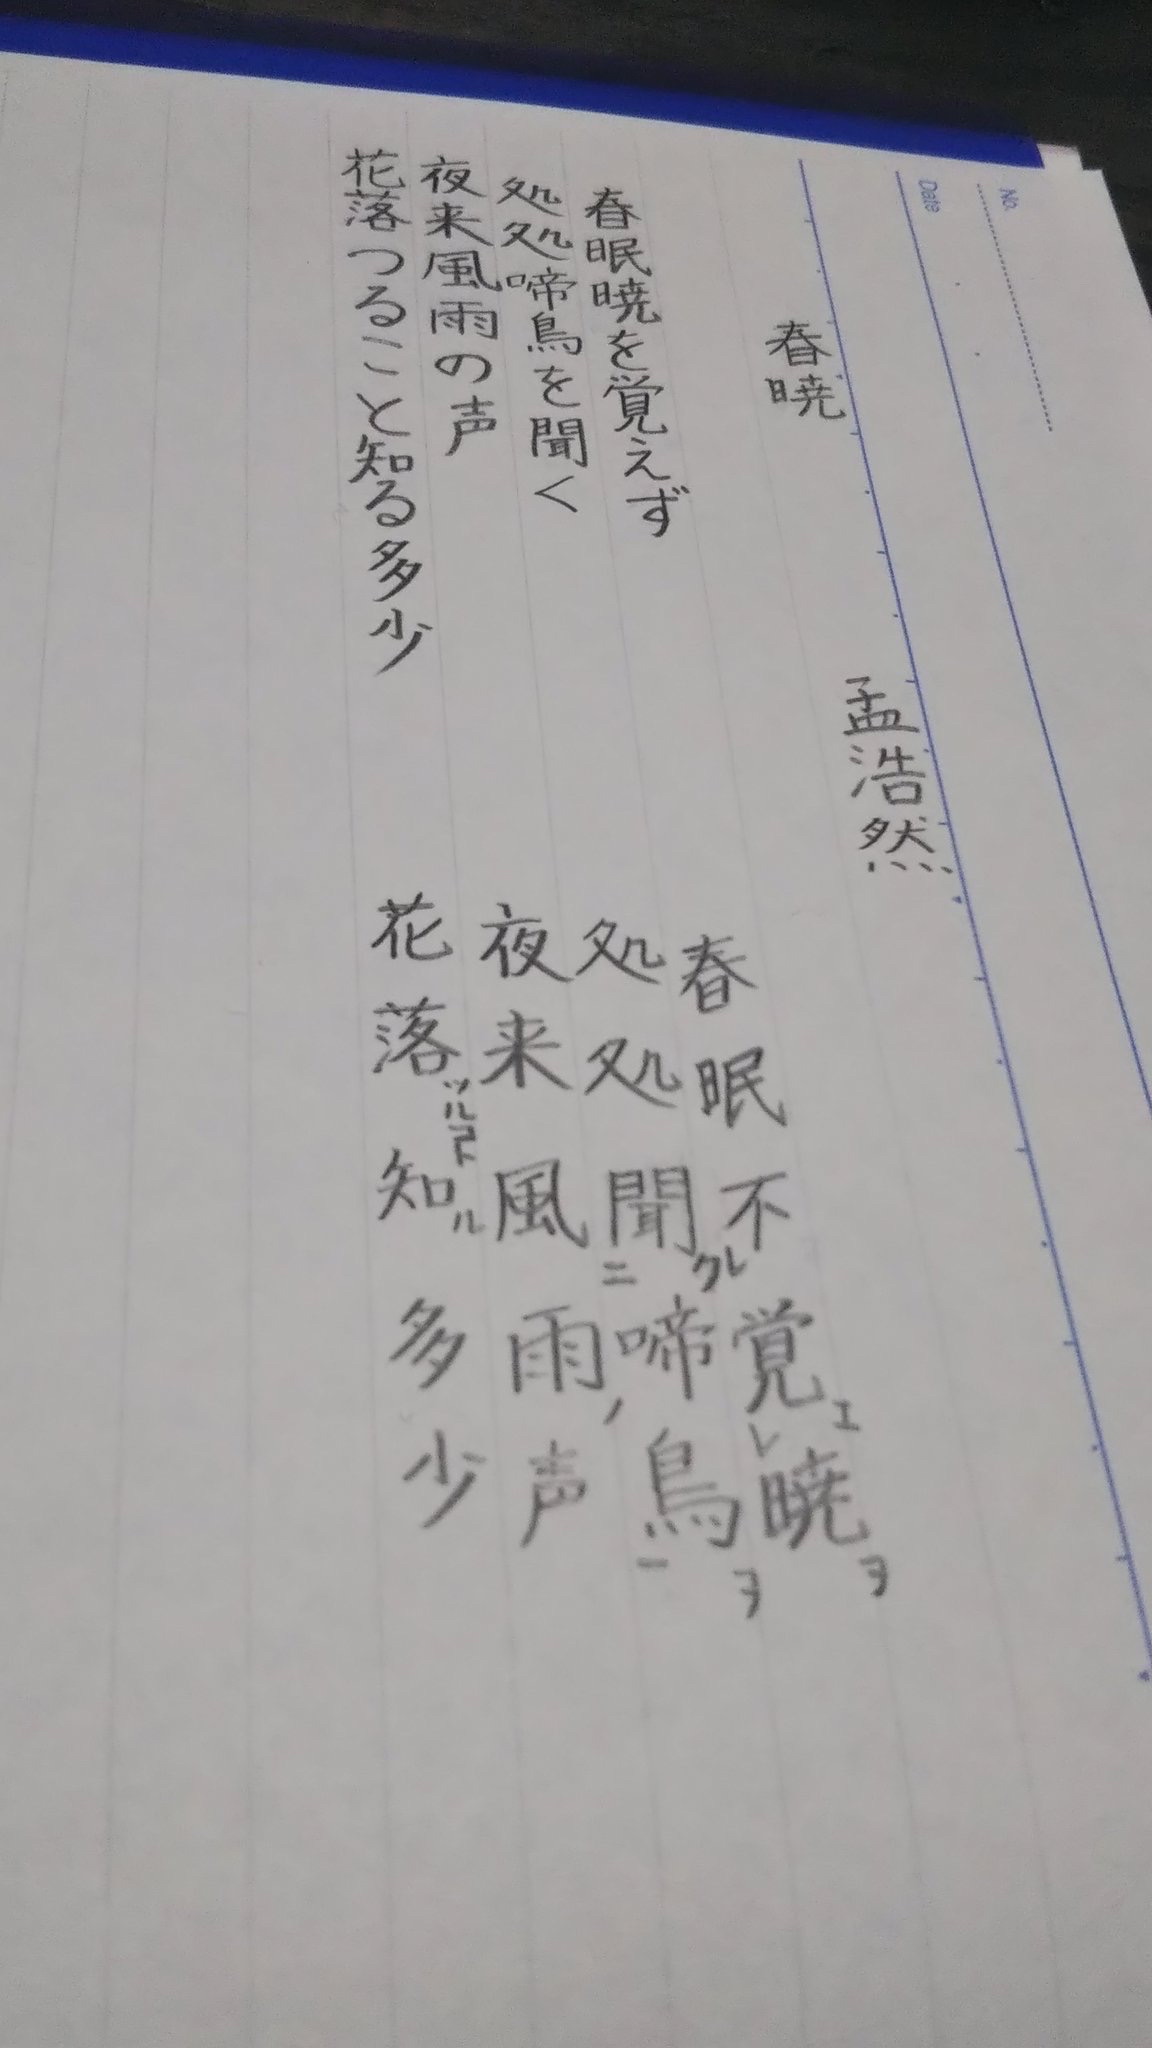 No.
Date
春暁
孟浩然
春眠暁を覚えず
処処啼鳥を聞く
夜来風雨の声
花落つること知る多少
春眠不レ覚エレ暁ヲ
処処聞ク二啼鳥ヲ一
夜来風雨ノ声
花落ツルコト知ル多少